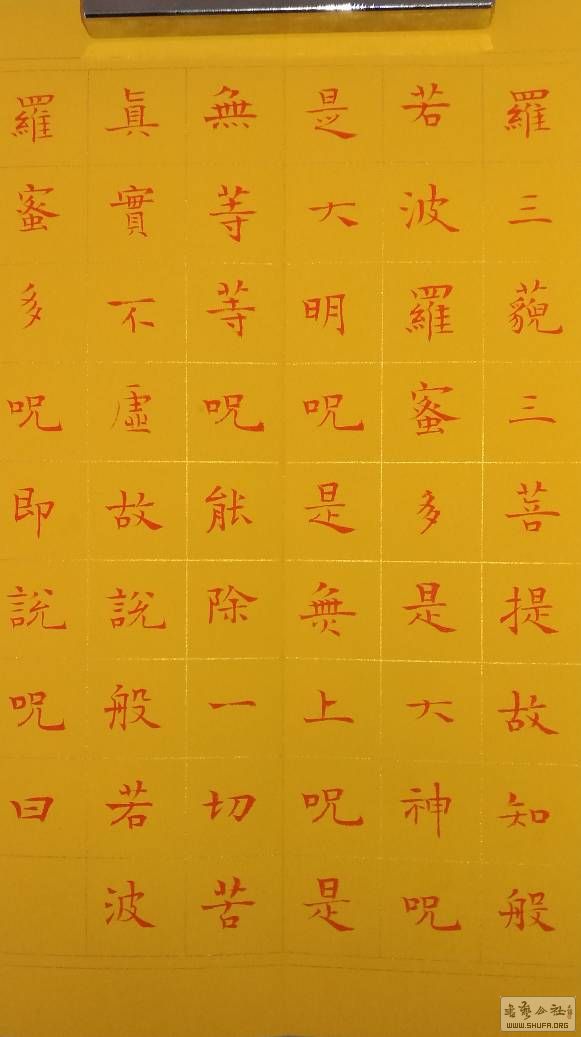 羅三藐三菩提故知般
若波羅蜜多是大神呪
是大明呪是無上呪是
無等等呪能除一切苦
真實不虛故說般若波
羅蜜多呪即說呪曰
书艺公社
WWW.SHUFA.ORG